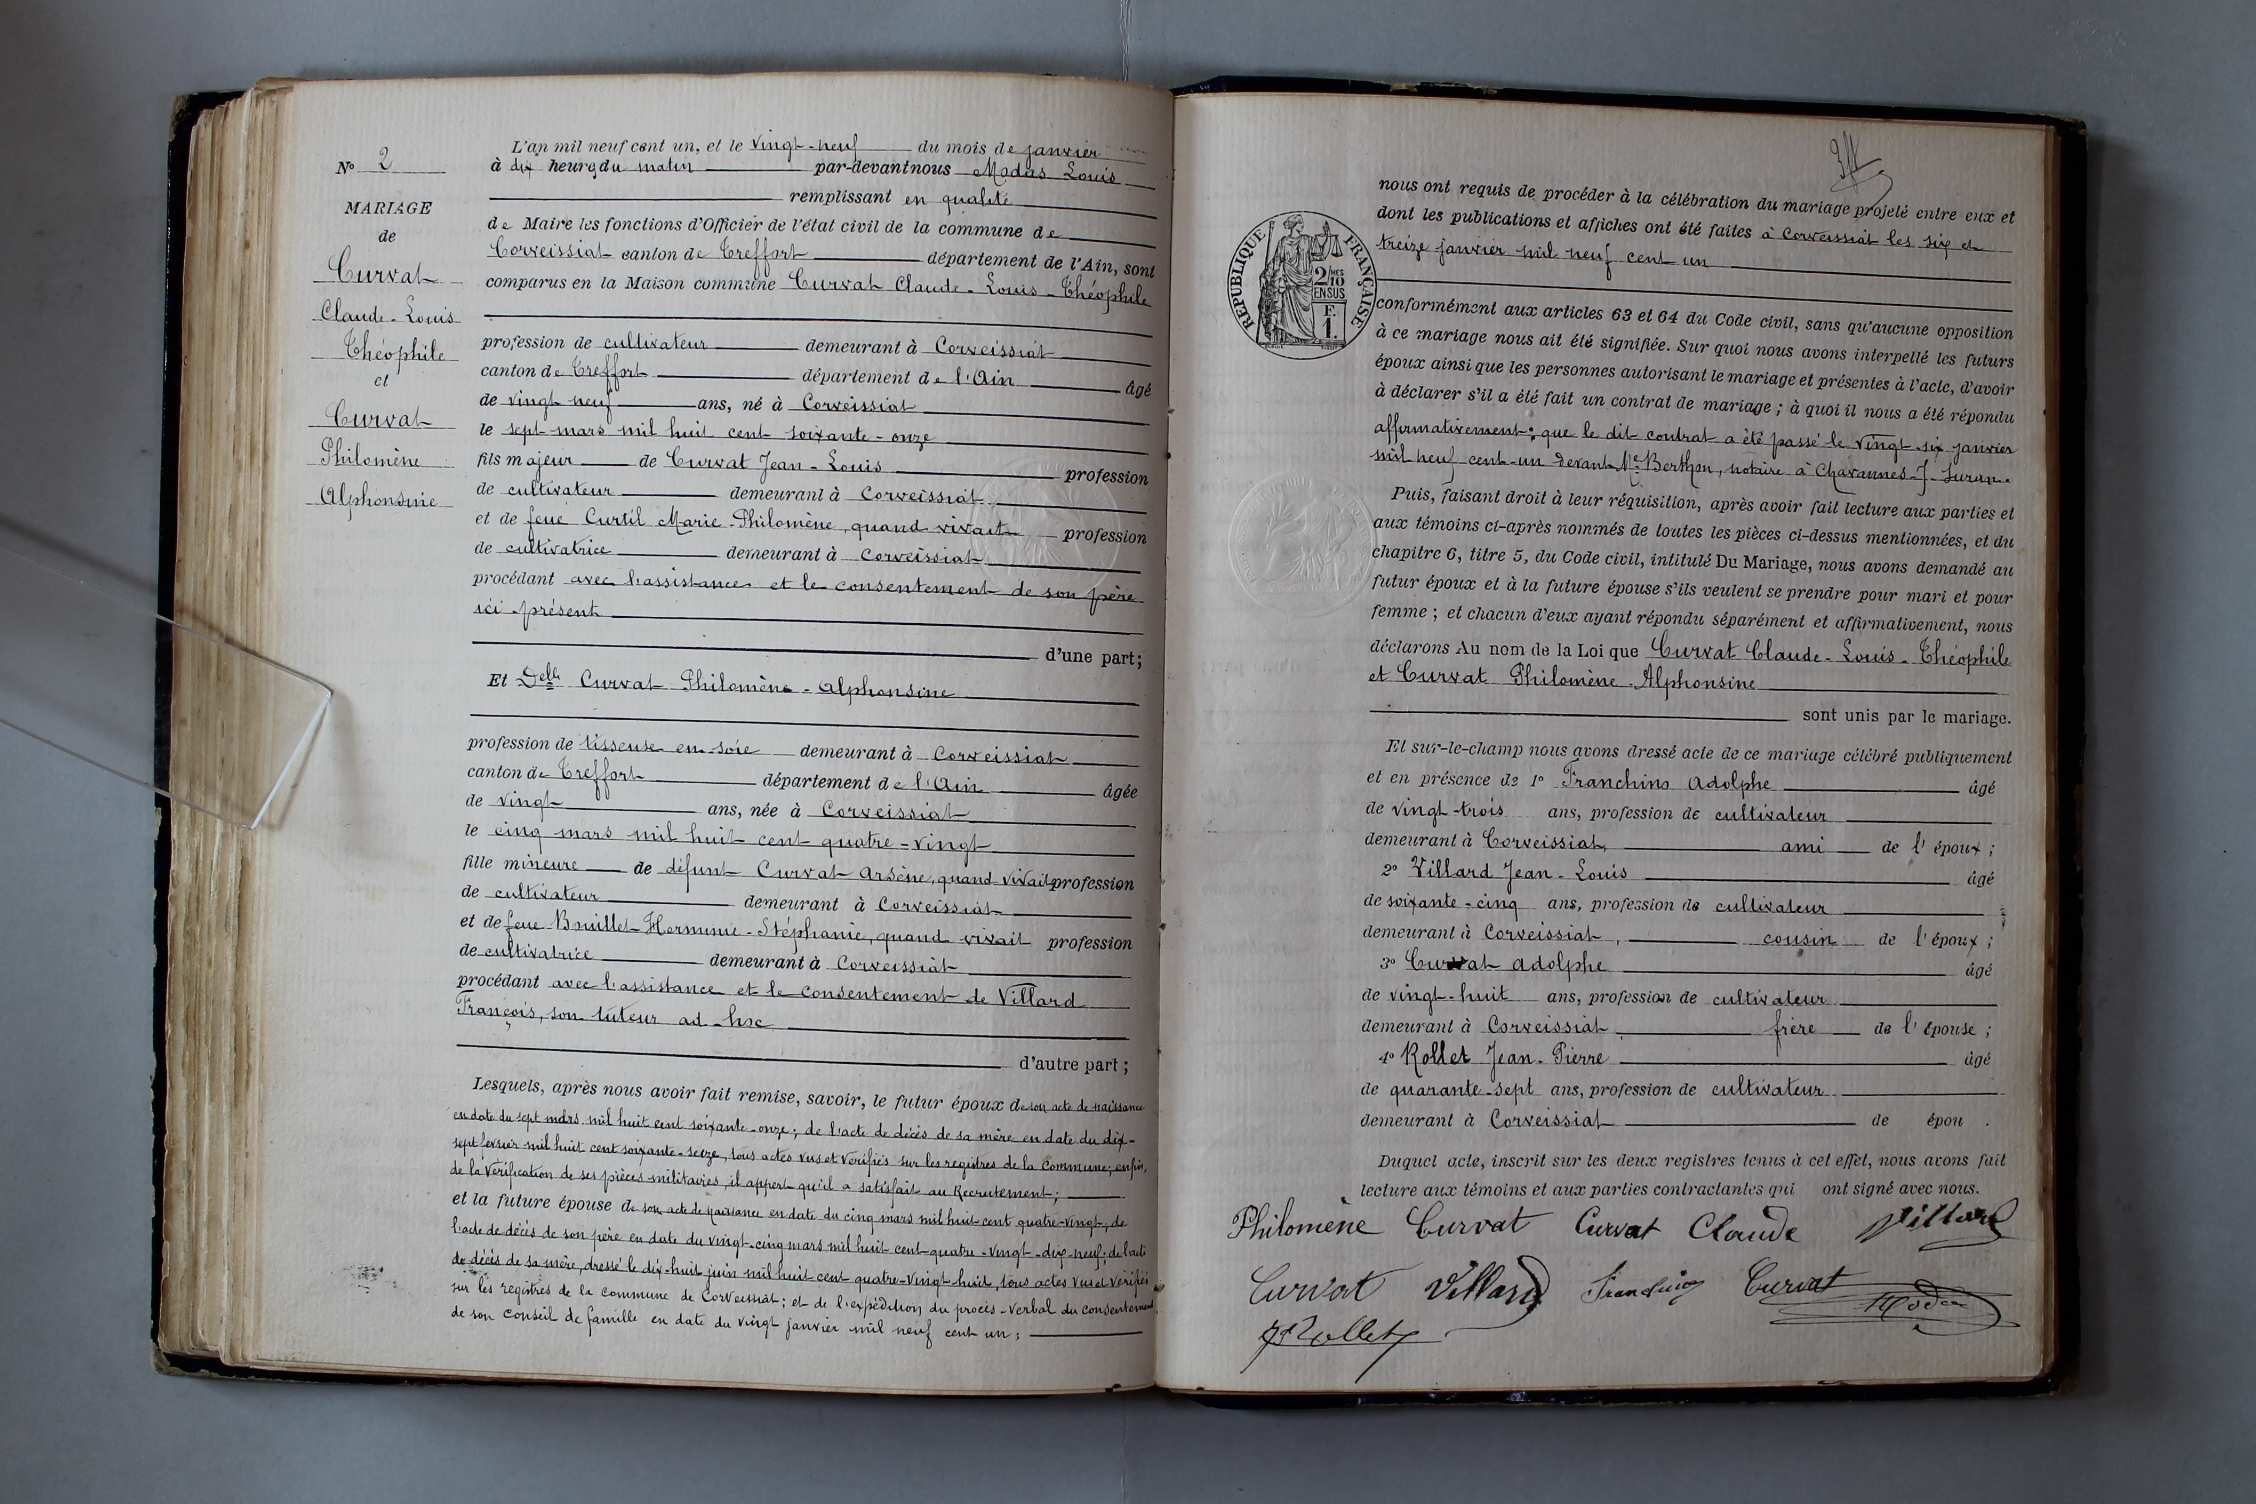 N° 2
MARIAGE
de
Curvat
Claude-Louis
Théophile
et
Curvat
Philomène
Alphonsine
L'an mil neuf cent un, et le vingt-neuf du mois de janvier
à dix heures du matin par-devant nous Modas Louis
remplissant en qualité
de Maire les fonctions d'Officier de l'état civil de la commune de
Corveissiat canton de Treffort département de l'Ain, sont
comparus en la Maison commune Curvat Claude-Louis-Théophile
profession de cultivateur demeurant à Corveissiat
canton de Treffort département de l'Ain âgé
de vingt neuf ans, né à Corveissiat
le sept mars mil huit cent soixante-onze
fils majeur de Curvat Jean-Louis profession
de cultivateur demeurant à Corveissiat
et de feue Curtil Marie-Philomène, quand vivait profession
de cultivatrice demeurant à Corveissiat
procédant avec l'assistance et le consentement de son père
ici présent
d'une part;
Et Delle Curvat Philomène-Alphonsine
profession de tisseuse en soie demeurant à Corveissiat
canton de Treffort département de l'Ain âgée
de vingt ans, née à Corveissiat
le cinq mars mil huit cent quatre-vingt
fille mineure de défunt Curvat Arsène, quand vivait profession
de cultivateur demeurant à Corveissiat
et de feue Bouillet Herminie-Stéphanie, quand vivait profession
de cultivatrice demeurant à Corveissiat
procédant avec l'assistance et le consentement de Villard
François, son tuteur ad-hoc
d'autre part;
Lesquels, après nous avoir fait remise, savoir, le futur époux de son acte de naissance
en date du sept mars mil huit cent soixante-onze; de l'acte de décès de sa mère en date du dix-
sept février mil huit cent soixante-seize, tous actes vus et vérifiés sur les registres de la commune; enfin,
de la vérification de ses pièces militaires, il appert qu'il a satisfait au Recrutement;
et la future épouse de son acte de naissance en date du cinq mars mil huit cent quatre-vingt, de
l'acte de décès de son père en date du vingt-cinq mars mil huit cent quatre-vingt-dix-neuf; de l'acte
de décès de sa mère, dressé le dix-huit juin mil huit cent quatre-vingt-huit, tous actes vus et vérifiés
sur les registres de la commune de Corveissiat; et de l'expédition du procès-verbal du consentement
de son conseil de famille en date du vingt janvier mil neuf cent un;
nous ont requis de procéder à la célébration du mariage projeté entre eux et
dont les publications et affiches ont été faites à Corveissiat les six et
treize janvier mil neuf cent un
RÉPUBLIQUE FRANÇAISE
2/10 MES
EN SUS
F.
1.
conformément aux articles 63 et 64 du Code civil, sans qu'aucune opposition
à ce mariage nous ait été signifiée. Sur quoi nous avons interpellé les futurs
époux ainsi que les personnes autorisant le mariage et présentes à l'acte, d'avoir
à déclarer s'il a été fait un contrat de mariage; à quoi il nous a été répondu
affirmativement; que le dit contrat a été passé le vingt-six janvier
mil neuf cent-un devant Me Berthon, notaire à Chavannes-s-Suran.
Puis, faisant droit à leur réquisition, après avoir fait lecture aux parties et
aux témoins ci-après nommés de toutes les pièces ci-dessus mentionnées, et du
chapitre 6, titre 5, du Code civil, intitulé Du Mariage, nous avons demandé au
futur époux et à la future épouse s'ils veulent se prendre pour mari et pour
femme; et chacun d'eux ayant répondu séparément et affirmativement, nous
déclarons Au nom de la Loi que Curvat Claude-Louis-Théophile
et Curvat Philomène-Alphonsine
sont unis par le mariage.
Et sur-le-champ nous avons dressé acte de ce mariage célébré publiquement
et en présence de 1° Franchino Adolphe âgé
de vingt-trois ans, profession de cultivateur
demeurant à Corveissiat, ami de l'époux;
2° Villard Jean-Louis âgé
de soixante-cinq ans, profession de cultivateur
demeurant à Corveissiat, cousin de l'époux;
3° Curvat Adolphe âgé
de vingt-huit ans, profession de cultivateur
demeurant à Corveissiat frère de l'épouse;
4° Rollet Jean-Pierre âgé
de quarante-sept ans, profession de cultivateur
demeurant à Corveissiat de épou .
Duquel acte, inscrit sur les deux registres tenus à cet effet, nous avons fait
lecture aux témoins et aux parties contractantes qui ont signé avec nous.
Philomène Curvat Curvat Claude Villard
Curvat Villard Franchino Curvat
Rollet